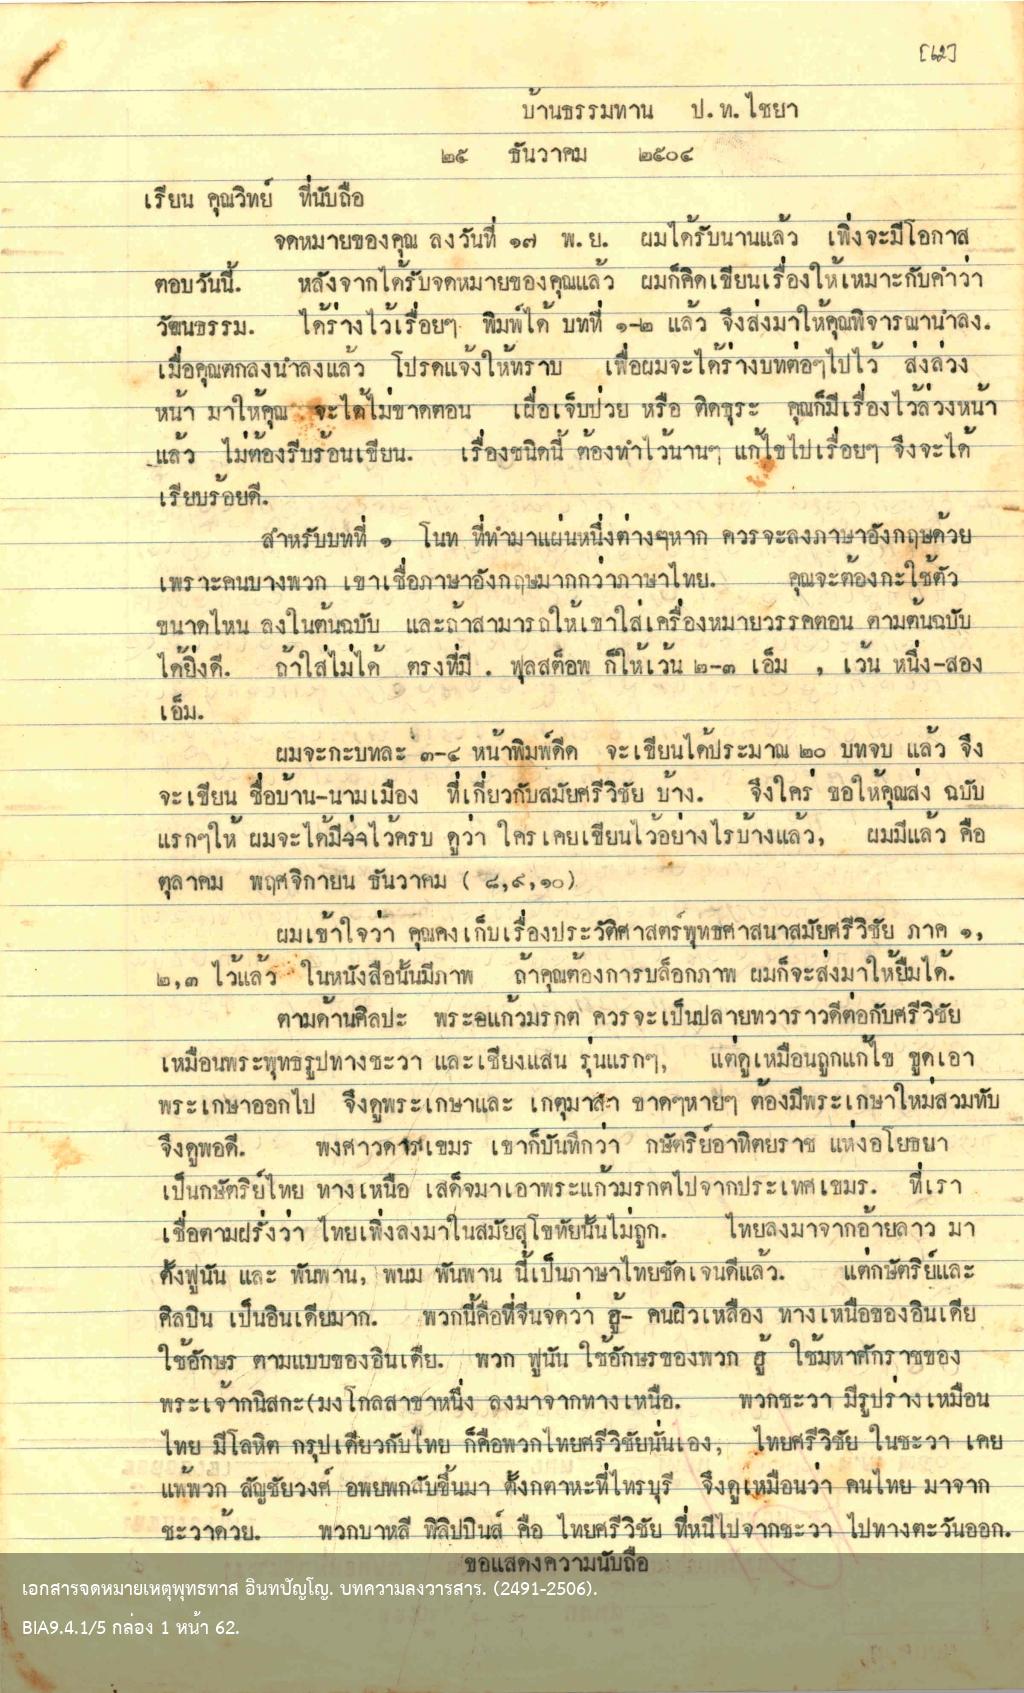 [๖๒]
บ้านธรรมทาน ป.ท.ไชยา
๒๕ ธันวาคม ๒๕๐๔
เรียน คุณวิทย์ ที่นับถือ
จดหมายของคุณ ลงวันที่ ๑๗ พ.ย. ผมได้รับนานแล้ว เพิ่งจะมีโอกาส
ตอบวันนี้. หลังจากได้รับจดหมายของคุณแล้ว ผมก็คิดเขียนเรื่องให้เหมาะกับคำว่า
วัฒนธรรม. ได้ร่างไว้เรื่อยๆ พิมพ์ได้ บทที่ ๑-๒ แล้ว จึงส่งมาให้คุณพิจารณานำลง.
เมื่อคุณตกลงนำลงแล้ว โปรดแจ้งให้ทราบ เพื่อผมจะได้ร่างบทต่อๆไปไว้ ส่งล่วง
หน้า มาให้คุณ จะได้ไม่ขาดตอน เผื่อเจ็บป่วย หรือ ติดธุระ คุณก็มีเรื่องไว้ล่วงหน้า
แล้ว ไม่ต้องรีบร้อนเขียน. เรื่องชนิดนี้ ต้องทำไว้นานๆ แก้ไขไปเรื่อยๆ จึงจะได้
เรียบร้อยดี.
สำหรับบทที่ ๑ โนท ที่ทำมาแผ่นหนึ่งต่างๆหาก ควรจะลงภาษาอังกฤษด้วย
เพราะคนบางพวก เขาเชื่อภาษาอังกฤษมากกว่าภาษาไทย. คุณจะต้องกะใช้ตัว
ขนาดไหน ลงในต้นฉบับ และถ้าสามารถให้เขาใส่เครื่องหมายวรรคตอน ตามต้นฉบับ
ได้ยิ่งดี. ถ้าใส่ไม่ได้ ตรงที่มี . ฟุลสต็อพ ก็ให้เว้น ๒-๓ เอ็ม , เว้น หนึ่ง-สอง
เอ็ม.
ผมจะกะบทละ ๓-๔ หน้าพิมพ์ดีด จะเขียนได้ประมาณ ๒๐ บทจบ แล้ว จึง
จะเขียน ชื่อบ้าน-นามเมือง ที่เกี่ยวกับสมัยศรีวิชัย บ้าง. จึงใคร่ ขอให้คุณส่ง ฉบับ
แรกๆให้ ผมจะได้มีไว้ครบ ดูว่า ใครเคยเขียนไว้อย่างไรบ้างแล้ว, ผมมีแล้ว คือ
ตุลาคม พฤศจิกายน ธันวาคม ( ๘,๙,๑๐)
ผมเข้าใจว่า คุณคงเก็บเรื่องประวัติศาสตร์พุทธศาสนาสมัยศรีวิชัย ภาค ๑,
๒,๓ ไว้แล้ว ในหนังสือนั้นมีภาพ ถ้าคุณต้องการบล็อกภาพ ผมก็จะส่งมาให้ยืมได้.
ตามด้านศิลปะ พระแก้วมรกต ควรจะเป็นปลายทวาราวดีต่อกับศรีวิชัย
เหมือนพระพุทธรูปทางชะวา และเชียงแสน รุ่นแรกๆ, แต่ดูเหมือนถูกแก้ไข ขูดเอา
พระเกษาออกไป จึงดูพระเกษาและ เกตุมาลา ขาดๆหายๆ ต้องมีพระเกษาใหม่สวมทับ
จึงดูพอดี. พงศาวดารเขมร เขาก็บันทึกว่า กษัตริย์อาทิตยราช แห่งอโยธยา
เป็นกษัตริย์ไทย ทางเหนือ เสด็จมาเอาพระแก้วมรกตไปจากประเทศเขมร. ที่เรา
เชื่อตามฝรั่งว่า ไทยเพิ่งลงมาในสมัยสุโขทัยนั้นไม่ถูก. ไทยลงมาจากอ้ายลาว มา
ตั้งฟูนัน และ พันพาน, พนม พันพาน นี้เป็นภาษาไทยชัดเจนดีแล้ว. แต่กษัตริย์และ
ศิลปิน เป็นอินเดียมาก. พวกนี้คือที่จีนจดว่า ฮู้- คนผิวเหลือง ทางเหนือของอินเดีย
ใช้อักษร ตามแบบของอินเดีย. พวก ฟูนัน ใช้อักษรของพวก ฮู้ ใช้มหาศักราชของ
พระเจ้ากนิสกะ(มงโกลสาขาหนึ่ง ลงมาจากทางเหนือ. พวกชะวา มีรูปร่างเหมือน
ไทย มีโลหิต กรุปเดียวกับไทย ก็คือพวกไทยศรีวิชัยนั่นเอง, ไทยศรีวิชัย ในชะวา เคย
แพ้พวก สัญชัยวงศ์ อพยพกลับขึ้นมา ตั้งกตาหะที่ไทรบุรี จึงดูเหมือนว่า คนไทย มาจาก
ชะวาด้วย. พวกบาหลี ฟิลิปปินส์ คือ ไทยศรีวิชัย ที่หนีไปจากชะวา ไปทางตะวันออก.
ขอแสดงความนับถือ
เอกสารจดหมายเหตุพุทธทาส อินทปัญโญ. บทความลงวารสาร. (2491-2506).
BIA9.4.1/5 กล่อง 1 หน้า 62.